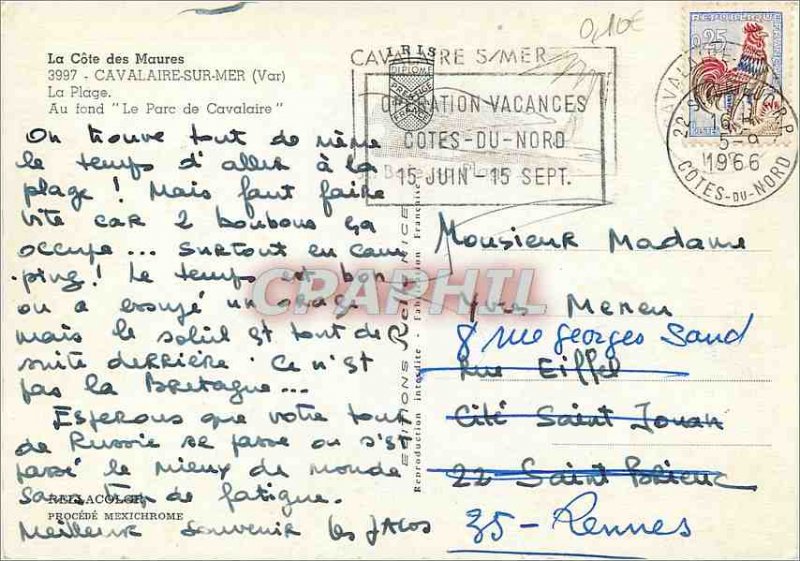 La Côte des Maures
3997 - CAVALAIRE-SUR-MER (Var)
La Plage.
Au fond "Le Parc de Cavalaire"
On trouve tout de même
le temps d'aller à la
plage! Mais faut faire
vite car 2 boubous ça
occupe... surtout en cam
-ping! Le temps est bon
on a essuyé un orage
mais le soleil est tout de
suite derrière. Ce n'est
pas la Bretagne...
Esperons que votre tour
de Russie se passe ou s'est
passé le mieux du monde
sans trop de fatigue.
Meilleur souvenir les JACOS
RELLACOLOR
PROCÉDÉ MEXICHROME
EDITIONS Rella NICE
Reproduction interdite - Fabrication Française
IRIS
DIPLOME
PRESTIGE
FRANCE
0,10€
CAVALAIRE S/MER
OPERATION VACANCES
COTES-DU-NORD
15 JUIN-15 SEPT.
0,25
22
R.P
16 H
5-9
1966
COTES-DU-NORD
Monsieur Madame
Yves Meneu
8 rue georges Sand
Rue Eiffel
Cité Saint Jouan
22 Saint Brieuc
35-Rennes
CPARPHIL